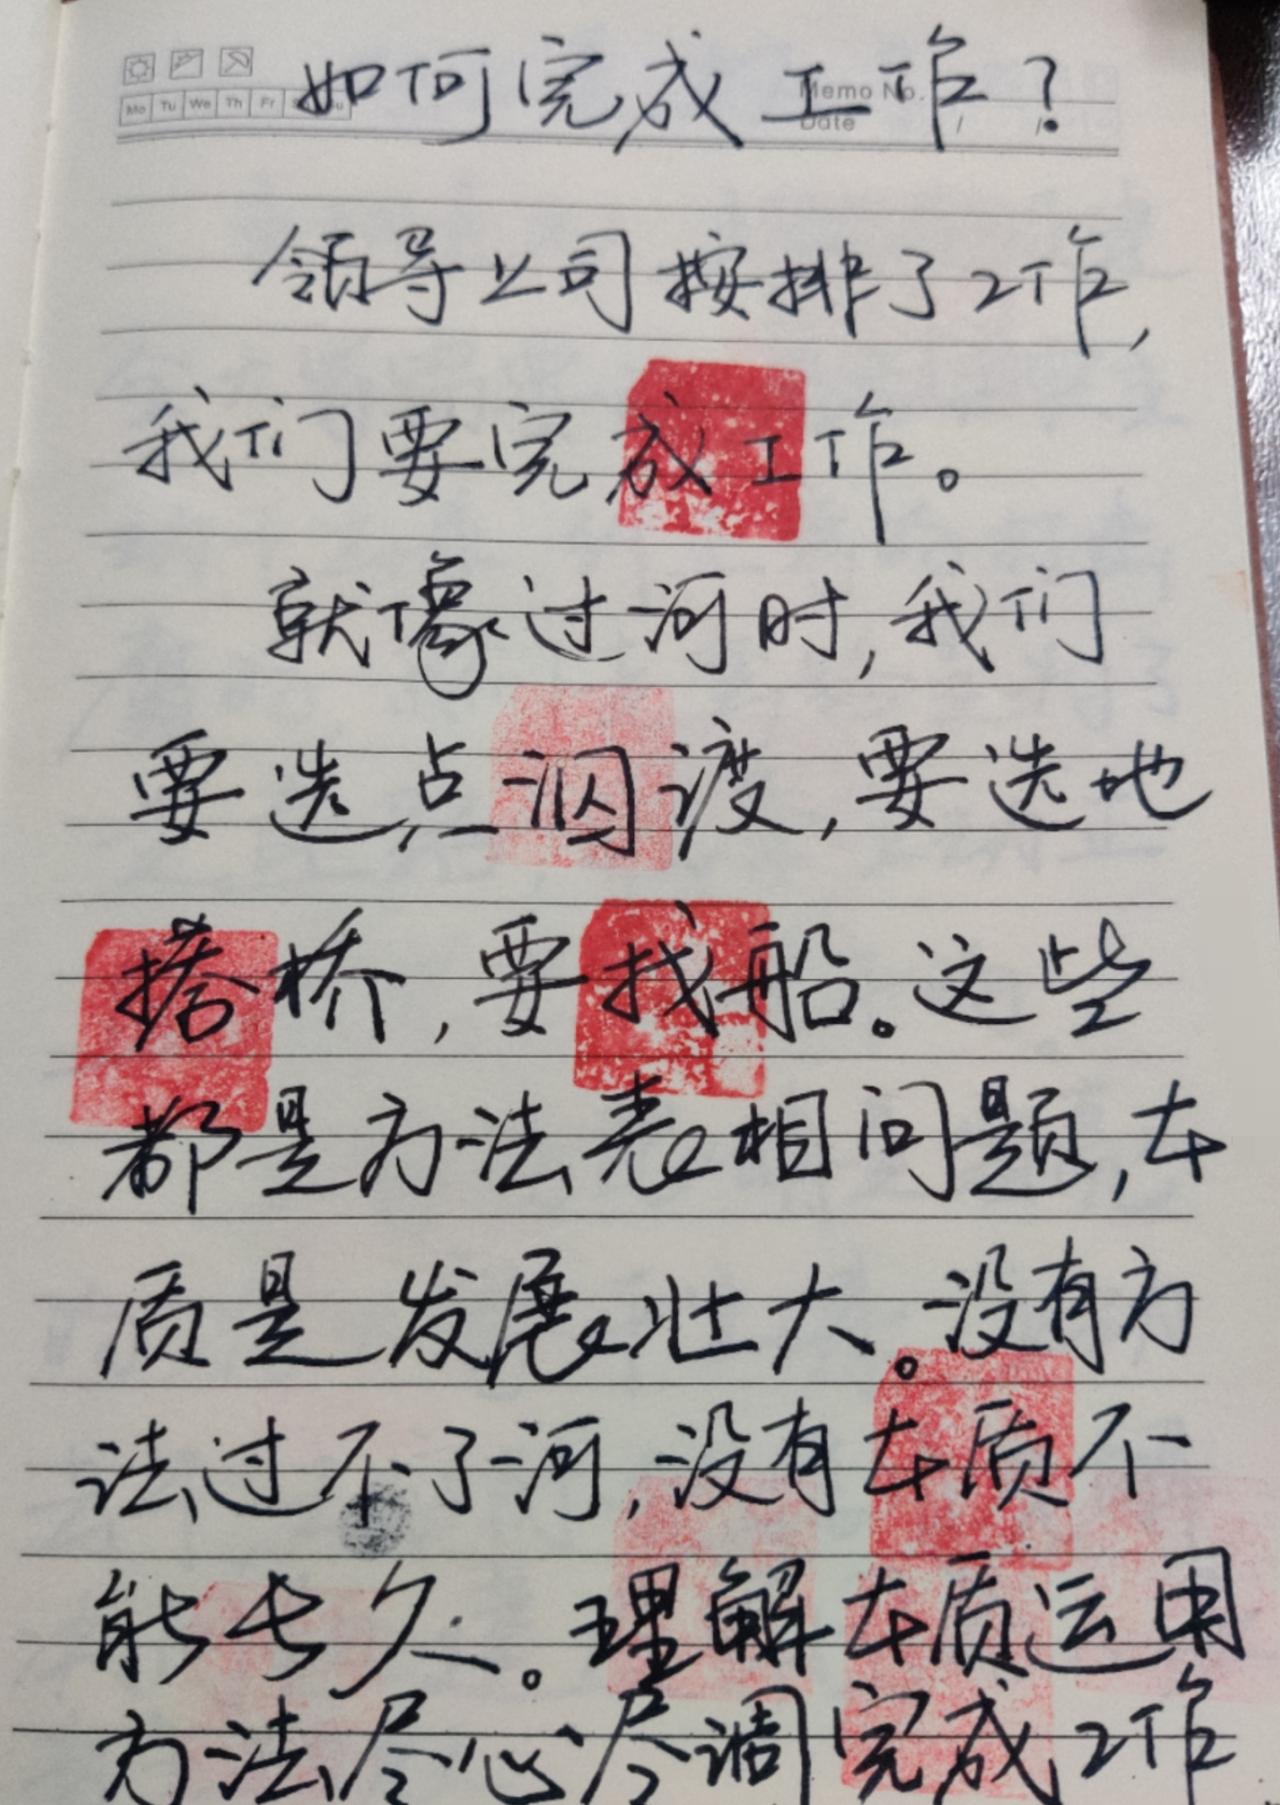 Mo Tu We Th Fr
Memo No.
Date / /
如何完成工作？
领导公司按排了工作，
我们要完成工作。
就像过河时，我们
要选点泅渡，要选地
搭桥，要找船。这些
都是方法表相问题，本
质是发展壮大。没有方
法过不了河，没有本质不
能长久。理解本质运用
方法尽心尽调完成工作